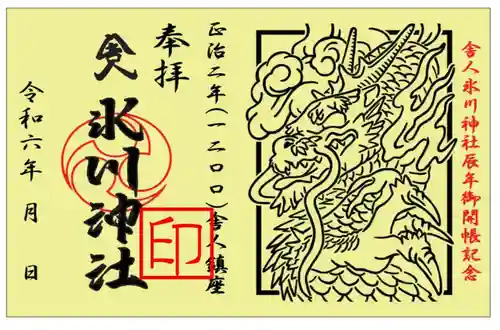 舎人氷川神社辰年御開帳記念
正治二年(一二〇〇)舎人鎮座
奉拝
舎人
氷川神社
印
令和六年 月 日